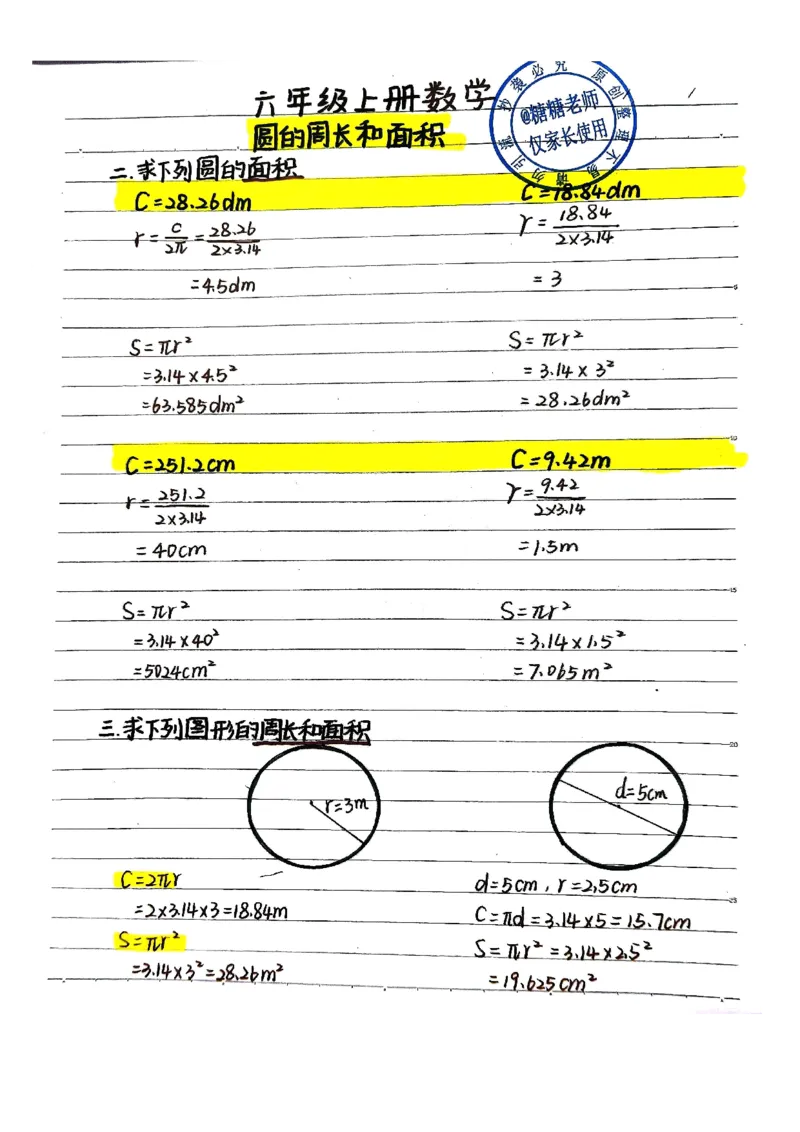 六年级上册数学
圆的周长和面积
原创整理不易 请勿引流抄袭必究
@糖糖老师
仅家长使用
二.求下列圆的面积
C=28.26dm
r=C/2π=28.26/2×3.14
=4.5dm
S=πr²
=3.14×4.5²
=63.585dm²
C=18.84dm
r=18.84/2×3.14
=3
S=πr²
=3.14×3²
=28.26dm²
C=251.2cm
r=251.2/2×3.14
=40cm
S=πr²
=3.14×40²
=5024cm²
C=9.42m
r=9.42/2×3.14
=1.5m
S=πr²
=3.14×1.5²
=7.065m²
三.求下列图形的周长和面积
r=3m
d=5cm
C=2πr
=2×3.14×3=18.84m
S=πr²
=3.14×3²=28.26m²
d=5cm,r=2.5cm
C=πd=3.14×5=15.7cm
S=πr²=3.14×2.5²
=19.625cm²
5
10
15
20
25